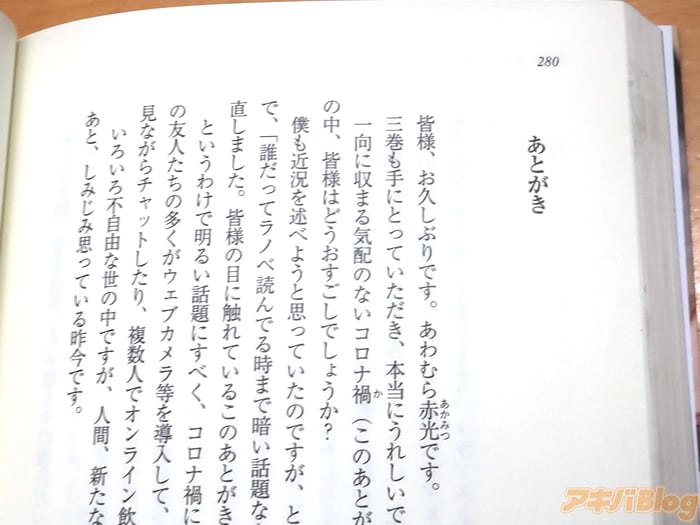 280
あとがき
皆様、お久しぶりです。あわむら赤光です。
あかみつ
三巻も手にとっていただき、本当にうれしいで
一向に収まる気配のないコロナ禍（このあとが
か
の中、皆様はどうおすごしでしょうか？
僕も近況を述べようと思っていたのですが、と
で、「誰だってラノベ読んでる時まで暗い話題な
直しました。皆様の目に触れているこのあとがき
というわけで明るい話題にすべく、コロナ禍に
の友人たちの多くがウェブカメラ等を導入して、
見ながらチャットしたり、複数人でオンライン飲
いろいろ不自由な世の中ですが、人間、新たな
あと、しみじみ思っている昨今です。
アキバBlog